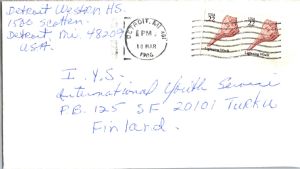 Detroit Western HS.
1500 Scotten
Detroit, Mi 48209
USA
DETROIT, MI
PM
18 MAR
1986
22
22
I.Y.S.
International Youth Service
P.B. 125 SF 20101 Turku
Finland.